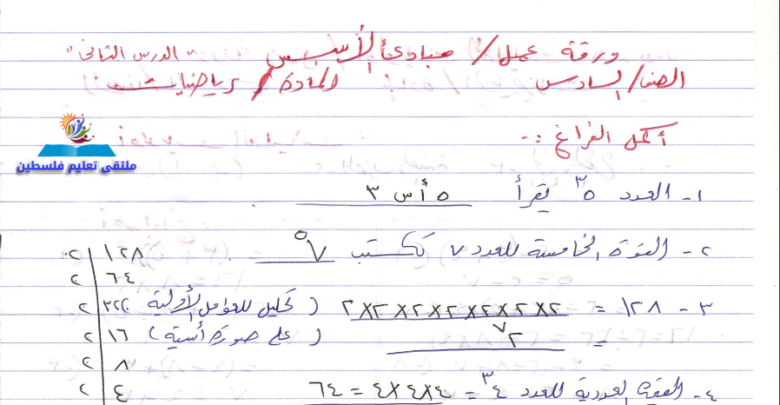 ورقة عمل / مبادئ الأسس "الدرس الثاني"
الصف / السادس المادة / رياضيات
ملتقى تعليم فلسطين
أكمل الفراغ :-
١- العدد ٥^٣ يقرأ ٥ أس ٣
٢- القوة الخامسة للعدد ٧ تكتب ٧^٥
٣- ١٢٨ = ٢×٢×٢×٢×٢×٢×٢ (تحليل للعوامل الأولية)
= ٢^٧ (على صورة أسية)
٢ | ١٢٨
٢ | ٦٤
٢ | ٣٢
٢ | ١٦
٢ | ٨
٢ | ٤
٤- القيمة العددية للعدد ٤^٣ = ٤×٤×٤ = ٦٤